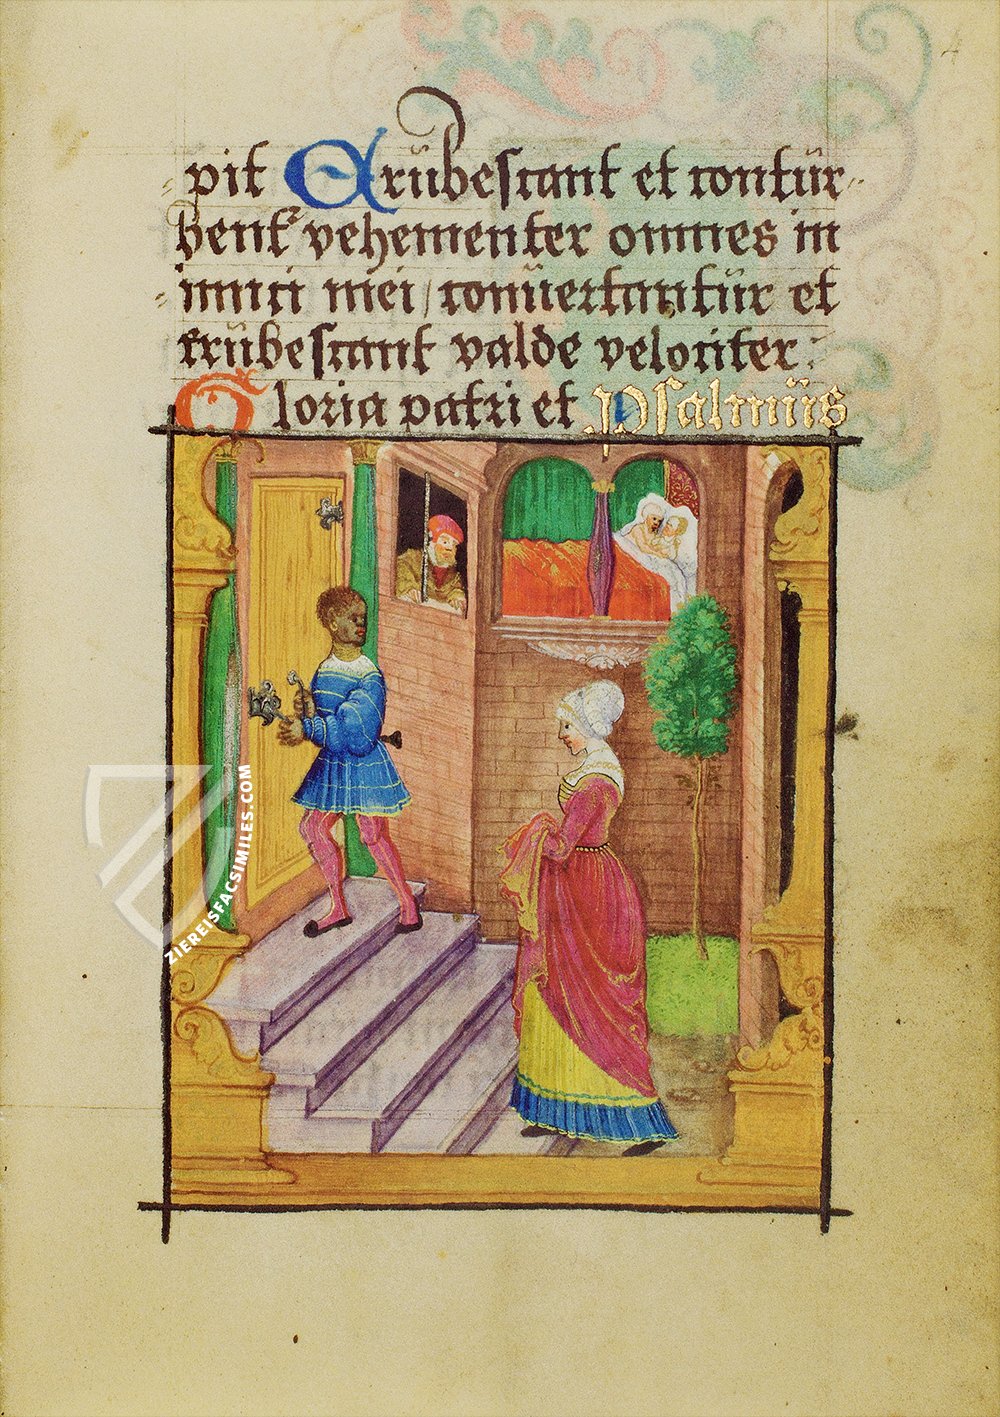 pit Erubescant et contur-
bent᷑ vehementer omnes in
imici mei / convertantur et
erubescant valde velociter :
Gloria patri et Psalmus
ZIEREISFACSIMILES.COM